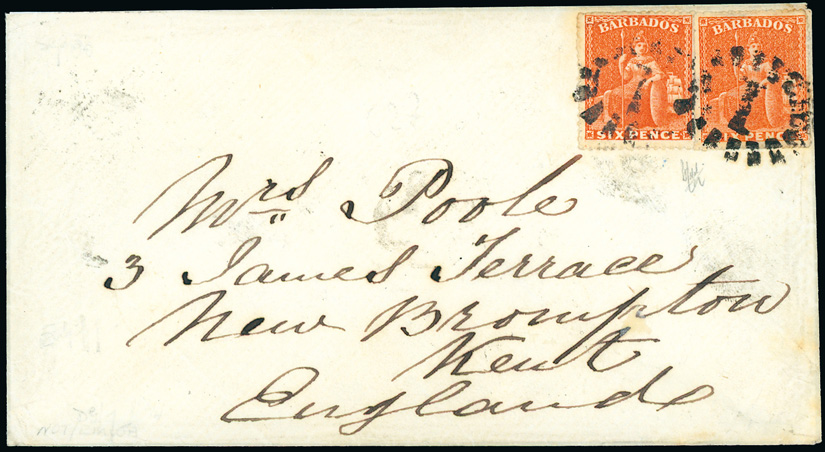 BARBADOS BARBADOS
SIX PENCE SIX PENCE
1 1
Mrs Poole
3 James Terrace
New Brompton
Kent
England